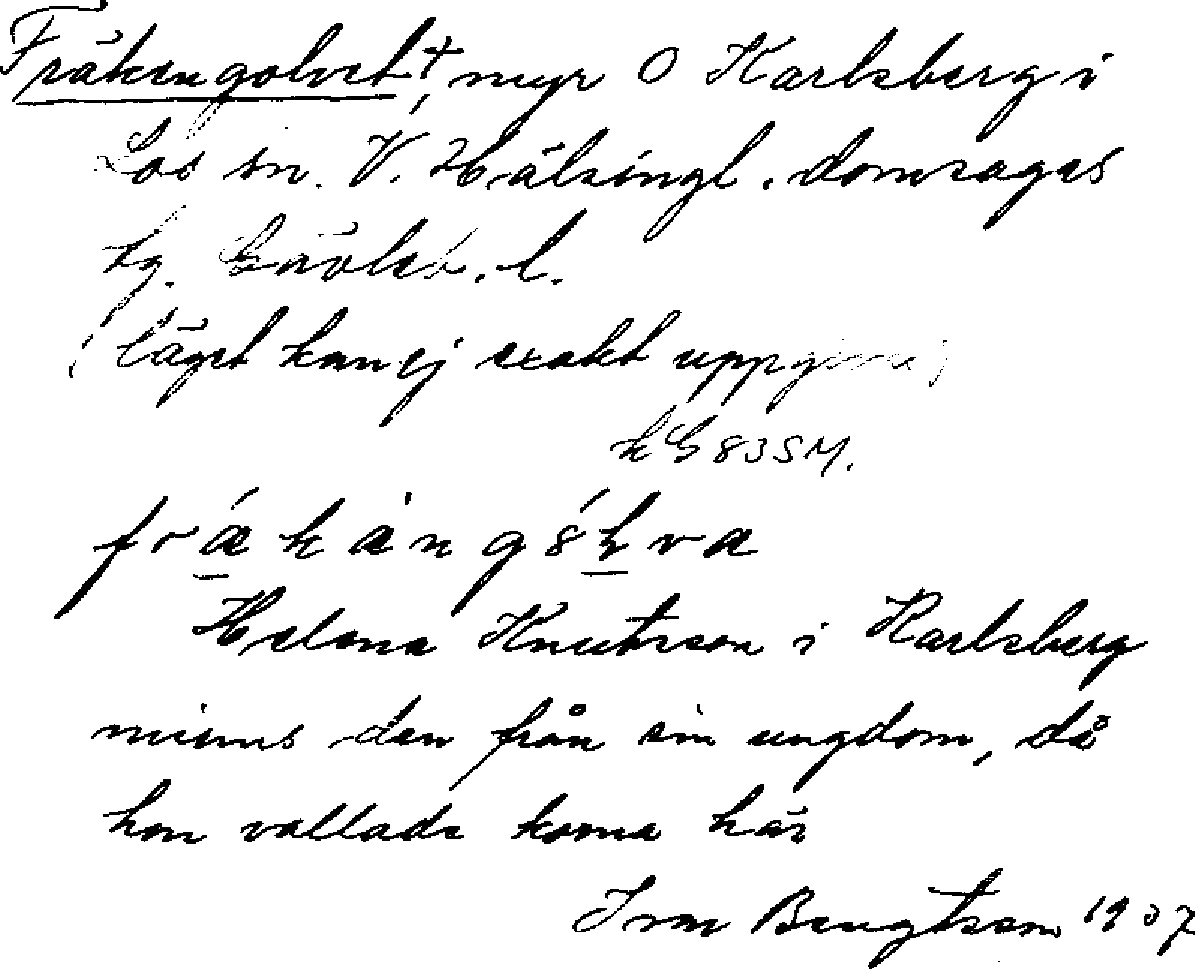 Fräkengolvet †, myr O Karlsberg i
Los sn. V. Hälsingl. domsagas
tg. Gävleb. l.
(läget kan ej exakt uppgivas)
kG 83SM.
Helena Knutsson i Karlsberg
minns den från sin ungdom, då
hon vallade korna här
Ivar Bengtsson 1937